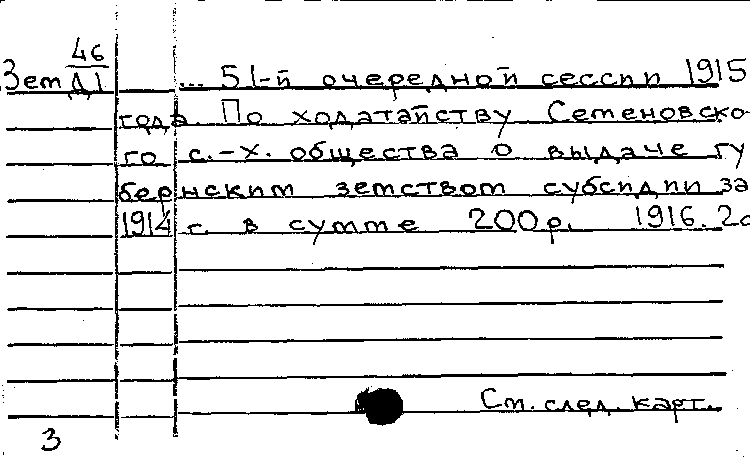 46
Зем Д1 ... 51-й очередной сессии 1915
года. По ходатайству Семеновско-
го с.-х. общества о выдаче гу
бернским земством субсидии за
1914 г. в сумме 200р. 1916. 2с
См. след. карт.
3